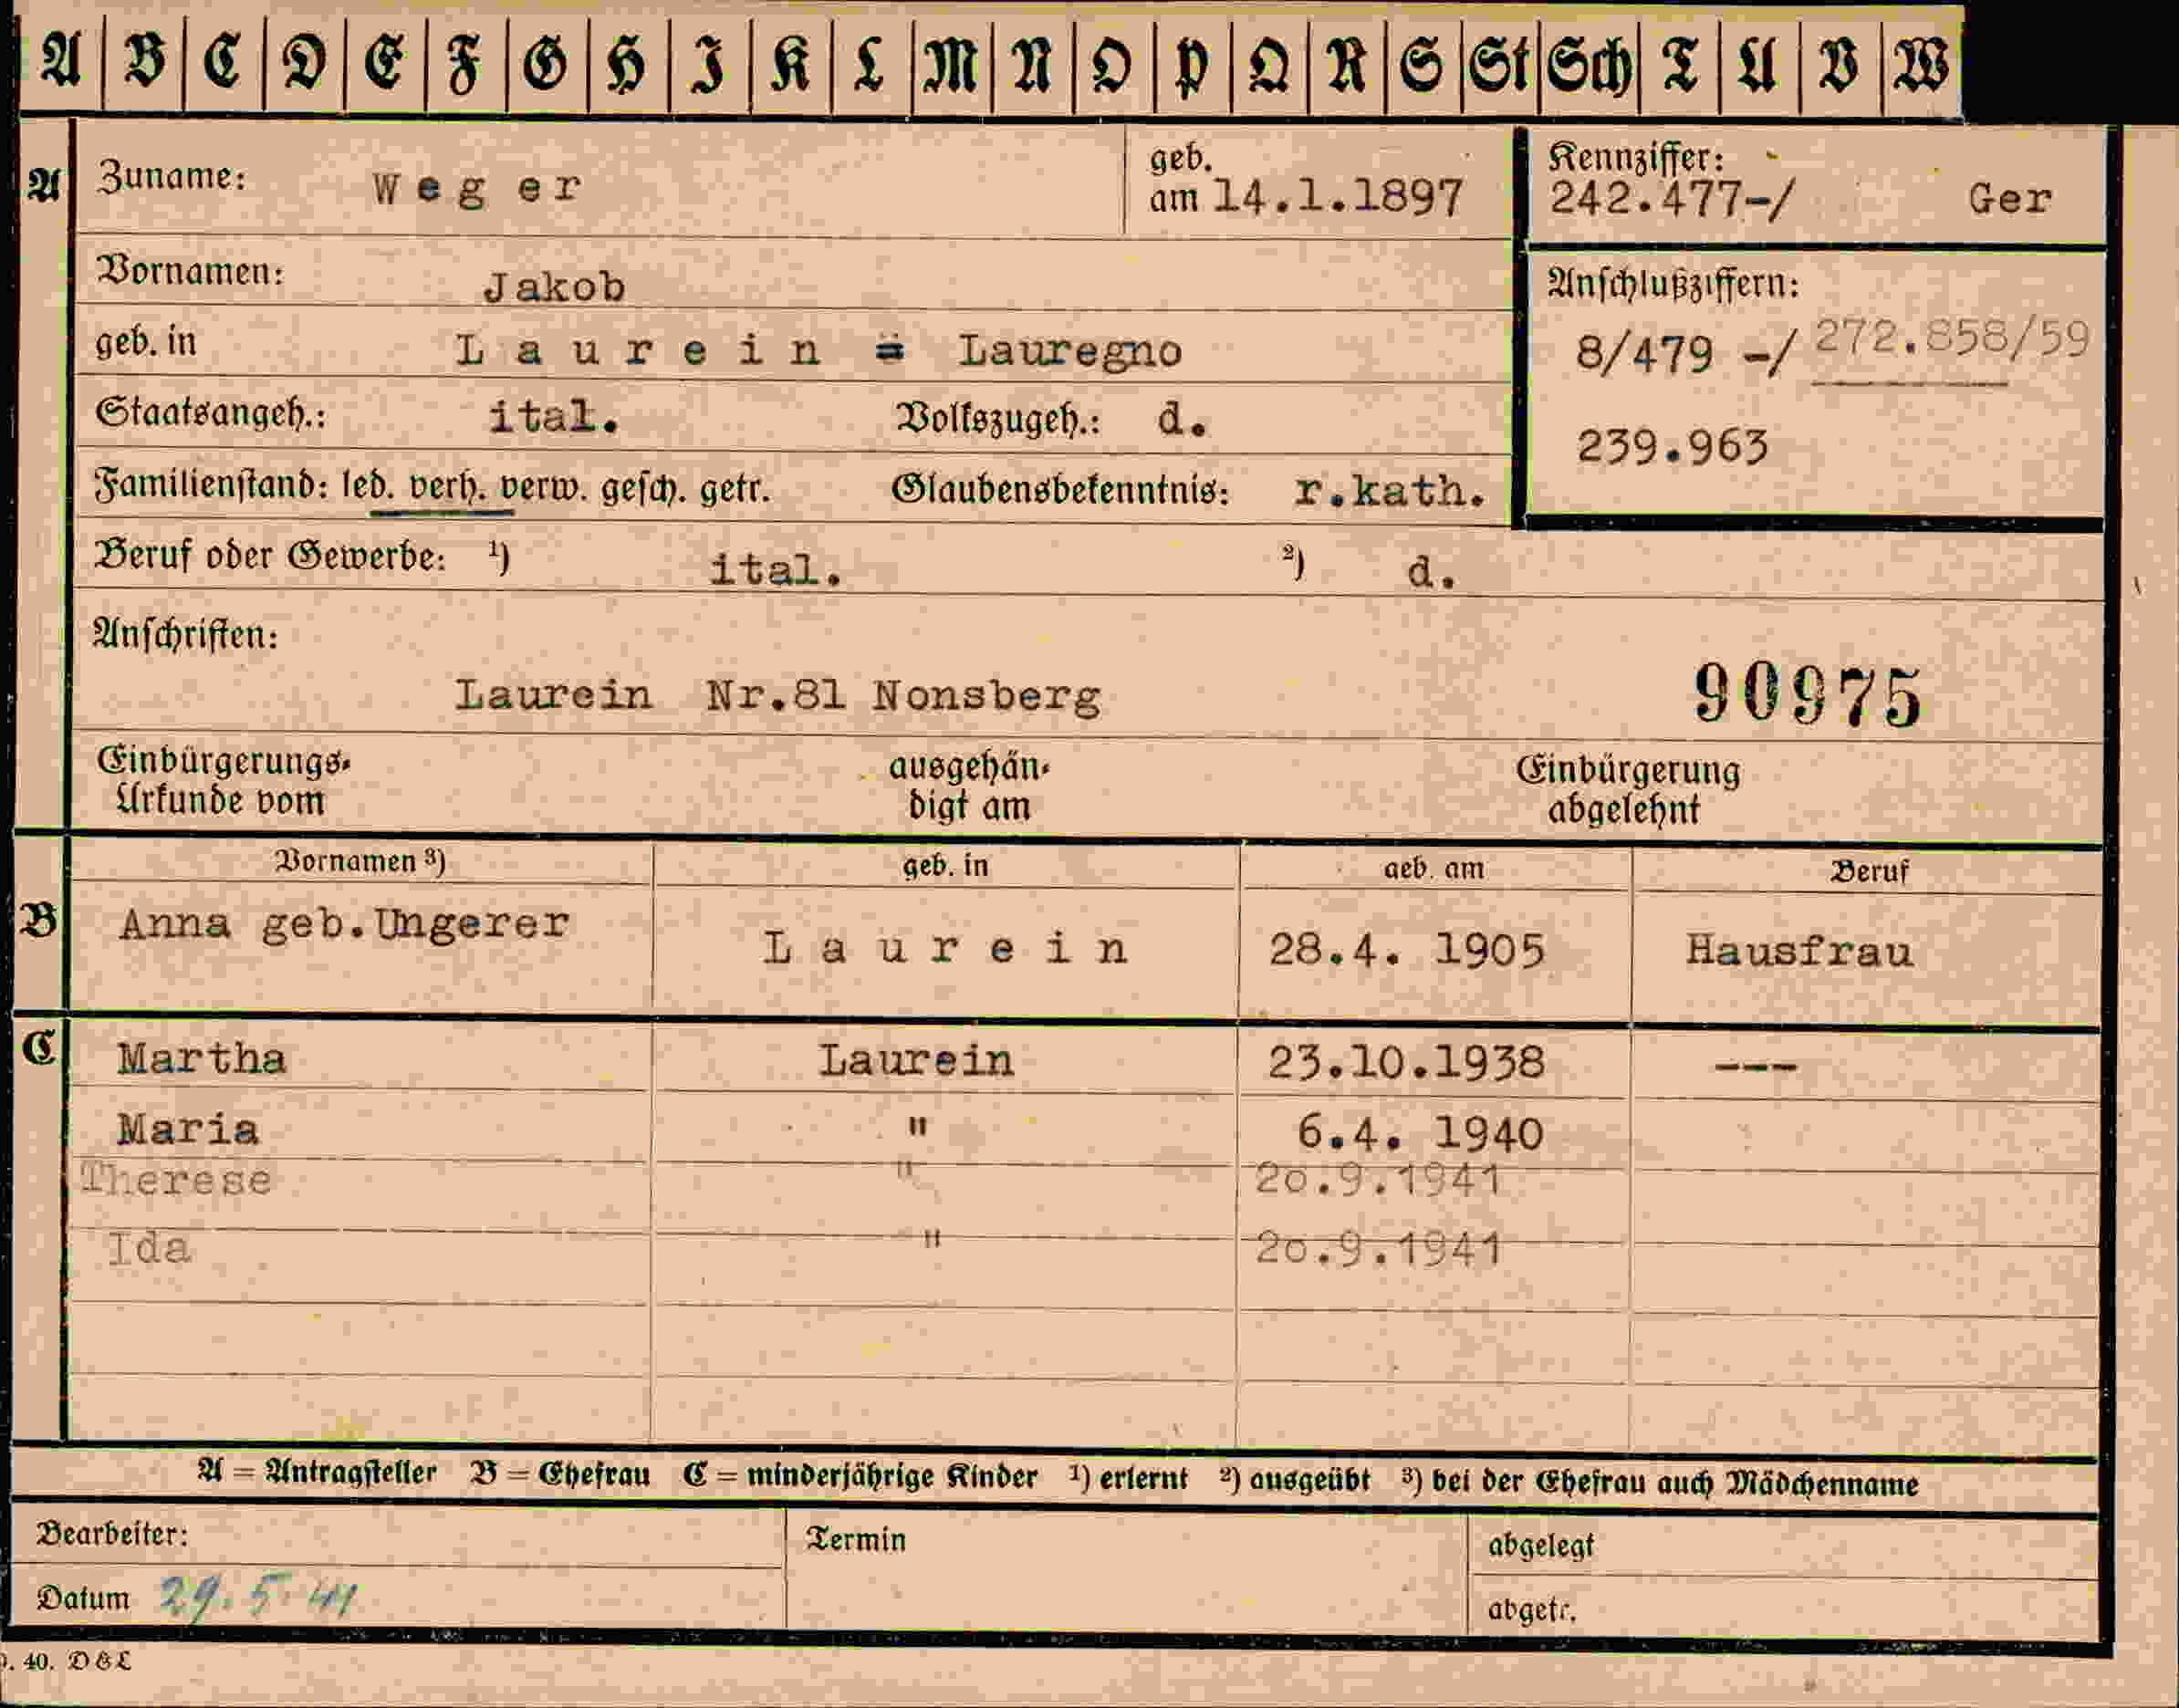 A B C D E F G H I K L M N O P Q R S St Sch T U V W
A Zuname: Weger geb. am 14.1.1897 Kennziffer: 242.477-/ Ger
Vornamen: Jakob
Anschlußziffern:
geb. in Laurein = Lauregno
8/479 -/ 272.858/59
Staatsangeh.: ital. Volkszugeh.: d.
239.963
Familienstand: led. verh. verw. gesch. getr. Glaubensbekenntnis: r.kath.
Beruf oder Gewerbe: ¹) ital. ²) d.
Anschriften:
Laurein Nr.81 Nonsberg 90975
Einbürgerungs-
Urkunde vom
ausgehän-
digt am
Einbürgerung
abgelehnt
Vornamen ³) geb. in geb. am Beruf
B Anna geb.Ungerer Laurein 28.4. 1905 Hausfrau
C Martha Laurein 23.10.1938 ---
Maria " 6.4. 1940
Therese " 20.9.1941
Ida " 20.9.1941
A = Antragsteller B = Ehefrau C = minderjährige Kinder ¹) erlernt ²) ausgeübt ³) bei der Ehefrau auch Mädchenname
Bearbeiter: Termin abgelegt
Datum 29.5.41 abgetr.
. 40. D&L